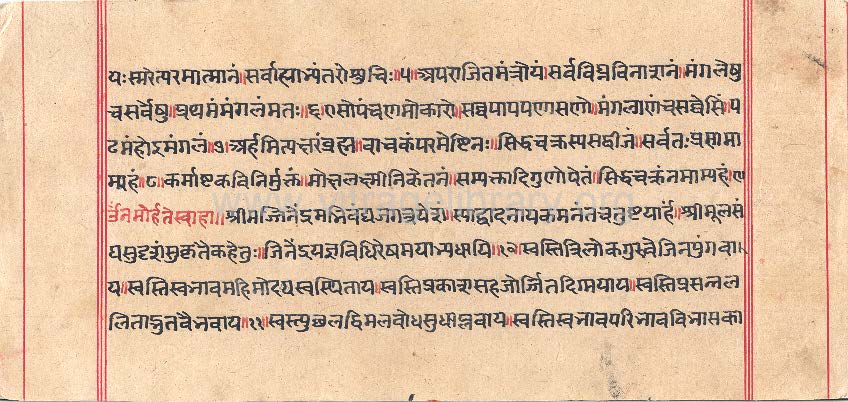 यः स्मरेत्परमात्मानं ॥ सर्वाह्याभ्यंतरो श्रुचिः ॥५ अपराजितमंत्रोयं ॥ सर्वविघ्नविनाशनं ॥ मंगलेषु
च सर्वेषु ॥ प्रथमं मंगलं मतः ॥६ एसो पंचणमोकारो ॥ सव्वपापपणासणो ॥ मंगलाणं च सव्वेसिं ॥ प
ढमं होइ मंगलं ॥७ अर्हमित्यक्षरं ब्रह्म ॥ वाचकं परमेष्टिनः ॥ सिद्धचक्रस्य सद्बीजं ॥ सर्वतः प्रणमा
म्यहं ॥८ कर्माष्टकविनिर्मुक्तं ॥ मोक्षलक्ष्मीनिकेतनं ॥ सम्यक्तादिगुणोपेतं ॥ सिद्धचक्रं नमाम्यहं ॥९
उँ नमोर्हते स्वाहा ॥ श्रीमज्जिनेंद्रमभिवंद्य जगत्रयेशं ॥ स्याद्वादनायकमनंतचतुष्टयार्हं ॥ श्रीमूलसं
घसुदृशं सुकृतैकहेतुः ॥ जिनेंद्रयज्ञविधिरेष मयाभ्यधायि ॥१० स्वस्ति त्रिलोकगुरुवे जिनपुंगवा
य ॥ स्वस्ति स्वभावमहिमोदयस्वस्थिताय ॥ स्वस्ति प्रकाशसहजोर्जितदिग्मयाय ॥ स्वस्ति प्रसन्नल
लिताद्भुतवैभवाय ॥११ स्वस्त्युछलद्विमलबोधसुधाप्लवाय ॥ स्वस्ति स्वभावपरिभावविभासका